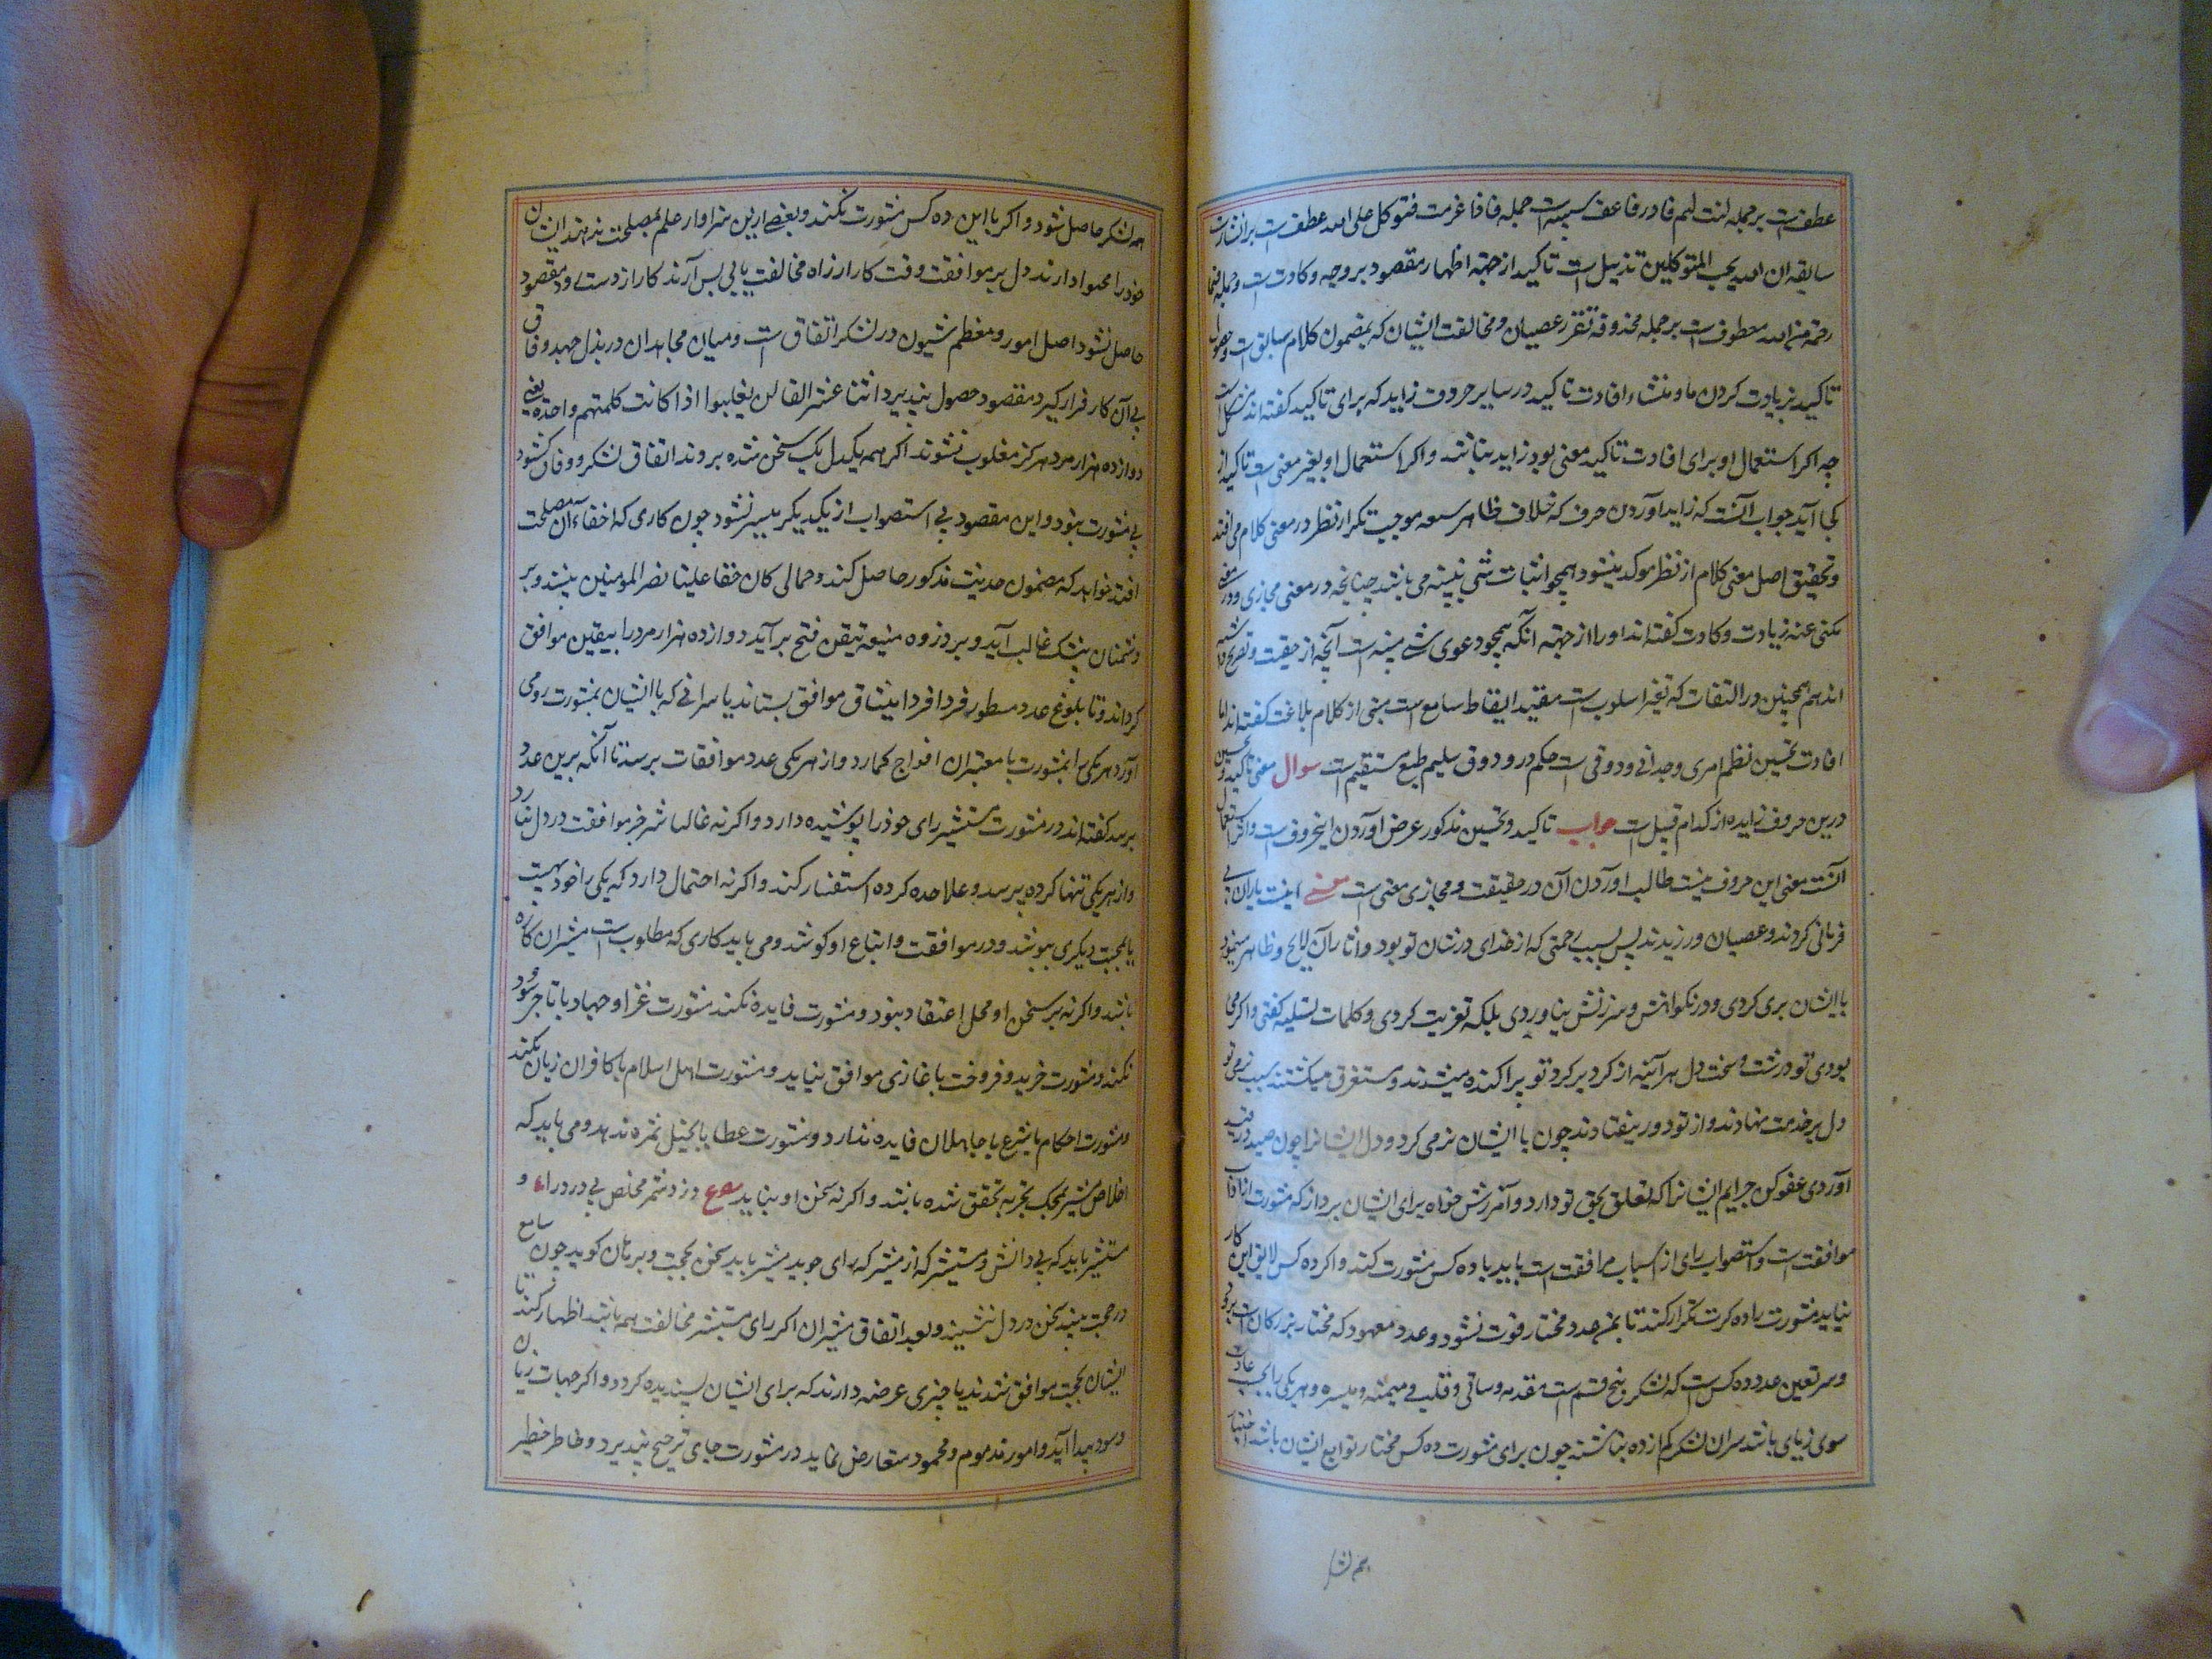 عطفست بر جمله لنت لهم فادر فاعف سببیه است جمله فاذا عزمت فتوکل علی الله عطفست بران
سابقه ان الله یحب المتوکلین تذییل است تاکید از جهته اظهار مقصود بر وجه وکادت است و جمله فبما
رحمة من الله معطوفست بر جمله محذوفه تقرر عصیان و مخالفت ایشان که بمضمون کلام سابق است
تاکید بزیادت کردن ما و منشاء افادت تاکید در سایر حروف زاید که برای تاکید کفته اند
چه اکر استعمال او برای افادت تاکید معنی بود زاید نباشد و اکر استعمال او بغیر معنی است تاکید از
کجا آید جواب آنست که زاید آوردن حرف که خلاف ظاهر موجب تکرار نظر در معنی کلام می افتد
و تحقیق اصل معنی کلام از نظر موکد میشود همچو اثبات شی ببینه می باشد چنانچه در معنی مجازی و در
مکنی عنه زیادت وکادت کفته اند او را از جهته آنکه همچو دعوی شی ببینه است آنچه از حقیقت و تصریح
اند همچنین در التفات که تغیر اسلوب است مفید ایقاظ سامع است مبنی از کلام بلاغت کفته اند اما
افادت تحسین نظم امری وجدانی و ذوقی است حکم در و ذوق سلیم طبع مستقیم است سوال معنی تاکید و تحسین
درین حروف زایده از کدام قبیل است جواب تاکید و تحسین مذکور عرض آوردن این حروف است و اکر استعمال
آنست معنی این حروف نیست طالب آوردن آن در حقیقت و مجازی معنی است معنی اینست یاران بی
فرمانی کردند و عصیان ورزیدند پس بسبب رحمتی که از خدای در شان تو بود و آثار آن لایح و ظاهر میبود
با ایشان بری کردی و در نکوهش و سرزنش نیاوردی بلکه تعزیت کردی و کلمات تسلیه کفتی و اکر می
بودی تو درشت و سخت دل هر آئینه از کرد بر کرد تو پراکنده میشدند و متفرق میکشتند بسبب نرمی تو
دل بر خدمت نهادند و از تو دور نیفتادند چون با ایشان نرمی کردی و دل ایشانرا چون صید در قید
آوردی عفو کن جرایم ایشانرا که تعلق بحق تو دارد و آمرزش خواه برای ایشان برداز که مشورت از آداب
موافقت است و استصواب رای از اسباب مرافقت است باید با ده کس مشورت کند و اکر ده کس لایق این کار
نیاید مشورت را ده کرت تکرار کند تا بهر عدد مختار فوت نشود و عدد معهود که مختار بزرکان است
و سر تعین عدد ده کس است که لشکر پنج قسم است مقدمه و ساقی و قلب و میمنه و میسره و هر یکی را بحسب عادت
سوی زیبای باشد سران لشکر کم از ده نباشند چون برای مشورت ده کس مختار توابع ایشان باشد اختیار
همه لشکر
همه لشکر حاصل شود و اکر با این ده کس مشورت نکند و بعضی ازین سزاوار علم بمصلحت ندهند ایشان
خود را محو دارند دل بر موافقت وقت کار از راه مخالفت پای پس آرند کار از دست رود مقصود
حاصل نشود اصل امور و معظم شیون در لشکر اتفاق است و میان مجاهدان در بذل جهد وفاق
بی آن کار قرار کیرد مقصود حصول نپذیرد اثنا عشر الفا لن یغلبوا اذا کانت کلمتهم واحدة یعنی
دوازده هزار مرد هرکز مغلوب نشوند اکر همه یکدل یک سخن شده بروند اتفاق لشکر و وفاق کشور
بی مشورت نبود و این مقصود بی استصواب از یکدیکر میسر نشود چون کاری که اخفاء آن مصلحت
افتد خواهد که مضمون حدیث مذکور حاصل کند و جمال کان حقا علینا نصر المومنین بیند و بر
دشمنان بیشک غالب آید و بر ذروه منیعه تیقن فتح برآید دوازده هزار مرد را بیقین موافق
کرداند و تا بلوغ عدد مسطور فردا فردا میثاق موافق بستاند یا سرانی که با ایشان بمشورت رومی
آورد هر یکی را بمشورت با معتبران افواج کمارد و از هر یکی عدد موافقات برسند تا آنکه برین عدد
برسد کفته اند در مشورت مستشیر رای خود را پوشیده دارد و اکر نه غالبا ثمره موافقت در دل نیارد
و از هر یکی تنها کرده پرسد و علاحده کرده استفسار کند و اکر نه احتمال دارد که یکی را خود هیبت
یا محبت دیکری بپوشد و در موافقت و اتباع او کوشد و می باید کاری که مطلوب است مشیران کاره
باشند و اکر نه بر سخن او محل اعتقاد نبود و مشورت فایده نکند مشورت غزا و جهاد با تاجر سود
نکند و مشورت خرید و فروخت با غازی موافق نیاید و مشورت اهل اسلام با کافران زیان کند
و مشورت احکام شرع با جاهلان فایده ندارد و مشورت عطا با بخیل ثمره ندهد و می باید که
اخلاص مشیر بمحک تجربه تحقق شده باشد و اکر نه سخن او نباید
مستشیر باید که بی دانش و مستشیر که از مشیر که رای جوید مشیر باید سخن بحجت و برهان کوید چون سامع
در حجت بیند سخن در دل نشیند و بعد اتفاق مشیران اکر رای مستشیر مخالفت همه باشد اظهار کند تا
ایشان بحجت موافق شدند یا چیزی عرضه دارند که برای ایشان پسندیده کردد و اکر جهات زیان
و سود پیدا آید و امور مذموم و محمود متعارض نماید در مشورت جای ترجیح نپذیرد و خاطر خطیر